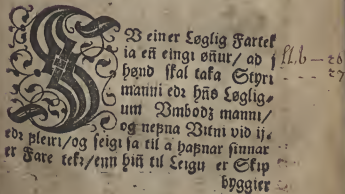 SV einer Løglig Fartek
ia eñ eingi øñur/ ad j
hønd skal taka Styri
manni edr hñs Løglig-
um Vmbodz manni/
og nefna Vitni vid ij.
edr fleiri/ og seigi sa til a hafnar sinnar
er Fare tekr/enn hiñ til Leigu er Skip
byggier
ll.b — 26
27